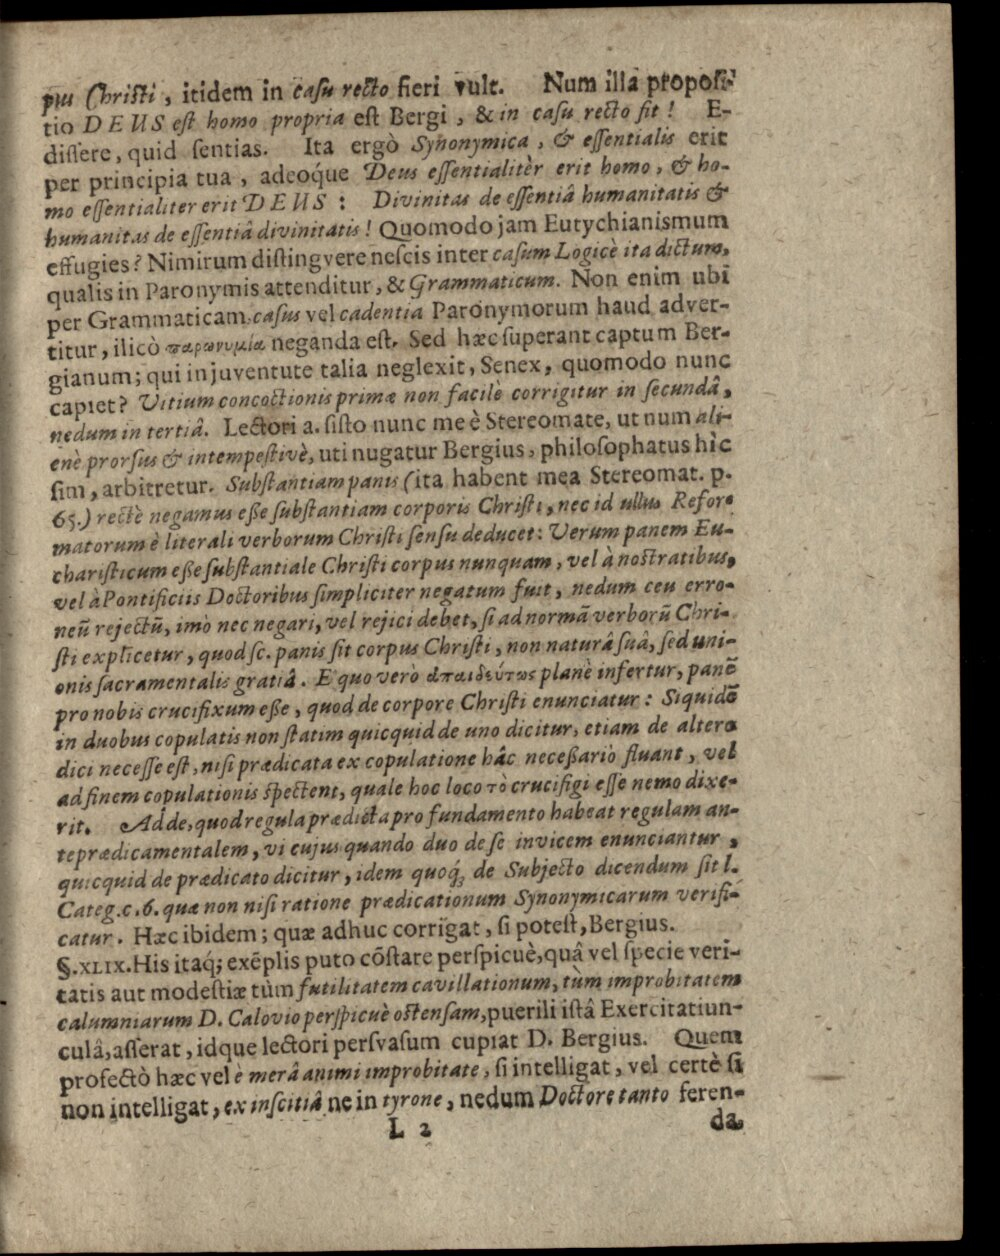 pus Christi, itidem in casu recto fieri vult. Num illa proposi-
tio DEUS est homo propria est Bergi, & in casu recto fit! E-
dissere, quid sentias. Ita ergò Synonymica, & essentialis erit
per principia tua, adeoque Deus essentialitèr erit homo, & ho-
mo essentialiter erit DEUS: Divinitas de essentiâ humanitatis &
humanitas de essentiâ divinitatis! Quomodo jam Eutychianismum
effugies? Nimirum distingvere nescis inter casum Logicè ita dictum,
qualis in Paronymis attenditur, & Grammaticum. Non enim ubi
per Grammaticam casus vel cadentia Paronymorum haud adver-
titur, ilicò παρωνυμία neganda est. Sed hæc superant captum Ber-
gianum; qui in juventute talia neglexit, Senex, quomodo nunc
capiet? Vitium concoctionis primæ non facilè corrigitur in secundâ,
nedum in tertiâ. Lectori a. sisto nunc me è Stereomate, ut num ali-
enè prorsus & intempestivè, uti nugatur Bergius, philosophatus hîc
sim, arbitretur. Substantiam panis (ita habent mea Stereomat. p.
65.) rectè negamus eße substantiam corporis Christi, nec id ullus Refor-
matorum è literali verborum Christi sensu deducet: Verum panem Eu-
charisticum eße substantiale Christi corpus nunquam, vel à nostratibus,
vel à Pontificiis Doctoribus simpliciter negatum fuit, nedum ceu erro-
neū rejectū, imò nec negari, vel rejici debet, si ad normā verborū Chri-
sti explicetur, quod sc. panis sit corpus Christi, non naturâ suâ, sed uni-
onis sacramentalis gratiâ. E quo verò ἀπαιδεύτως planè infertur, panē
pro nobis crucifixum eße, quod de corpore Christi enunciatur: Siquidē
in duobus copulatis non statim quicquid de uno dicitur, etiam de altero
dici necesse est, nisi prædicata ex copulatione hâc neceßariò fluant, vel
ad finem copulationis spectent, quale hoc loco τὸ crucifigi esse nemo dixe-
rit. Adde, quod regula prædicta pro fundamento habeat regulam an-
teprædicamentalem, vi cujus quando duo de se invicem enunciantur,
quicquid de prædicato dicitur, idem quoq; de Subjecto dicendum sit l.
Categ. c. 6. quæ non nisi ratione prædicationum Synonymicarum verifi-
catur. Hæc ibidem; quæ adhuc corrigat, si potest, Bergius.
§. XLIX. His itaq; exēplis puto cōstare perspicuè, quâ vel specie veri-
tatis aut modestiæ tùm futilitatem cavillationum, tùm improbitatem
calumniarum D. Calovio perspicuè ostensam, puerili istâ Exercitatiun-
culâ, asserat, idque lectori persvasum cupiat D. Bergius. Quem
profectò hæc vel è merâ animi improbitate, si intelligat, vel certè si
non intelligat, ex inscitiâ ne in tyrone, nedum Doctore tanto feren-
L 2 da.